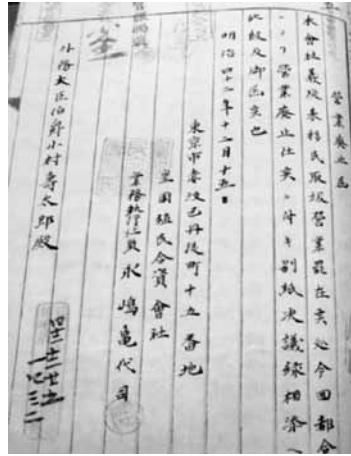 營業廢止届
本會社義従来移民取扱營業罷在候処今回都合
ニヨリ營業廢止仕候ニ付キ別紙决議録相添ヘ
此段及御届候也
明治四十二年十二月十五日
東京市赤坂区丹後町十五番地
皇国殖民合資會社
業務執行社員 水嶋亀代司
外務大臣伯爵小村壽太郎殿